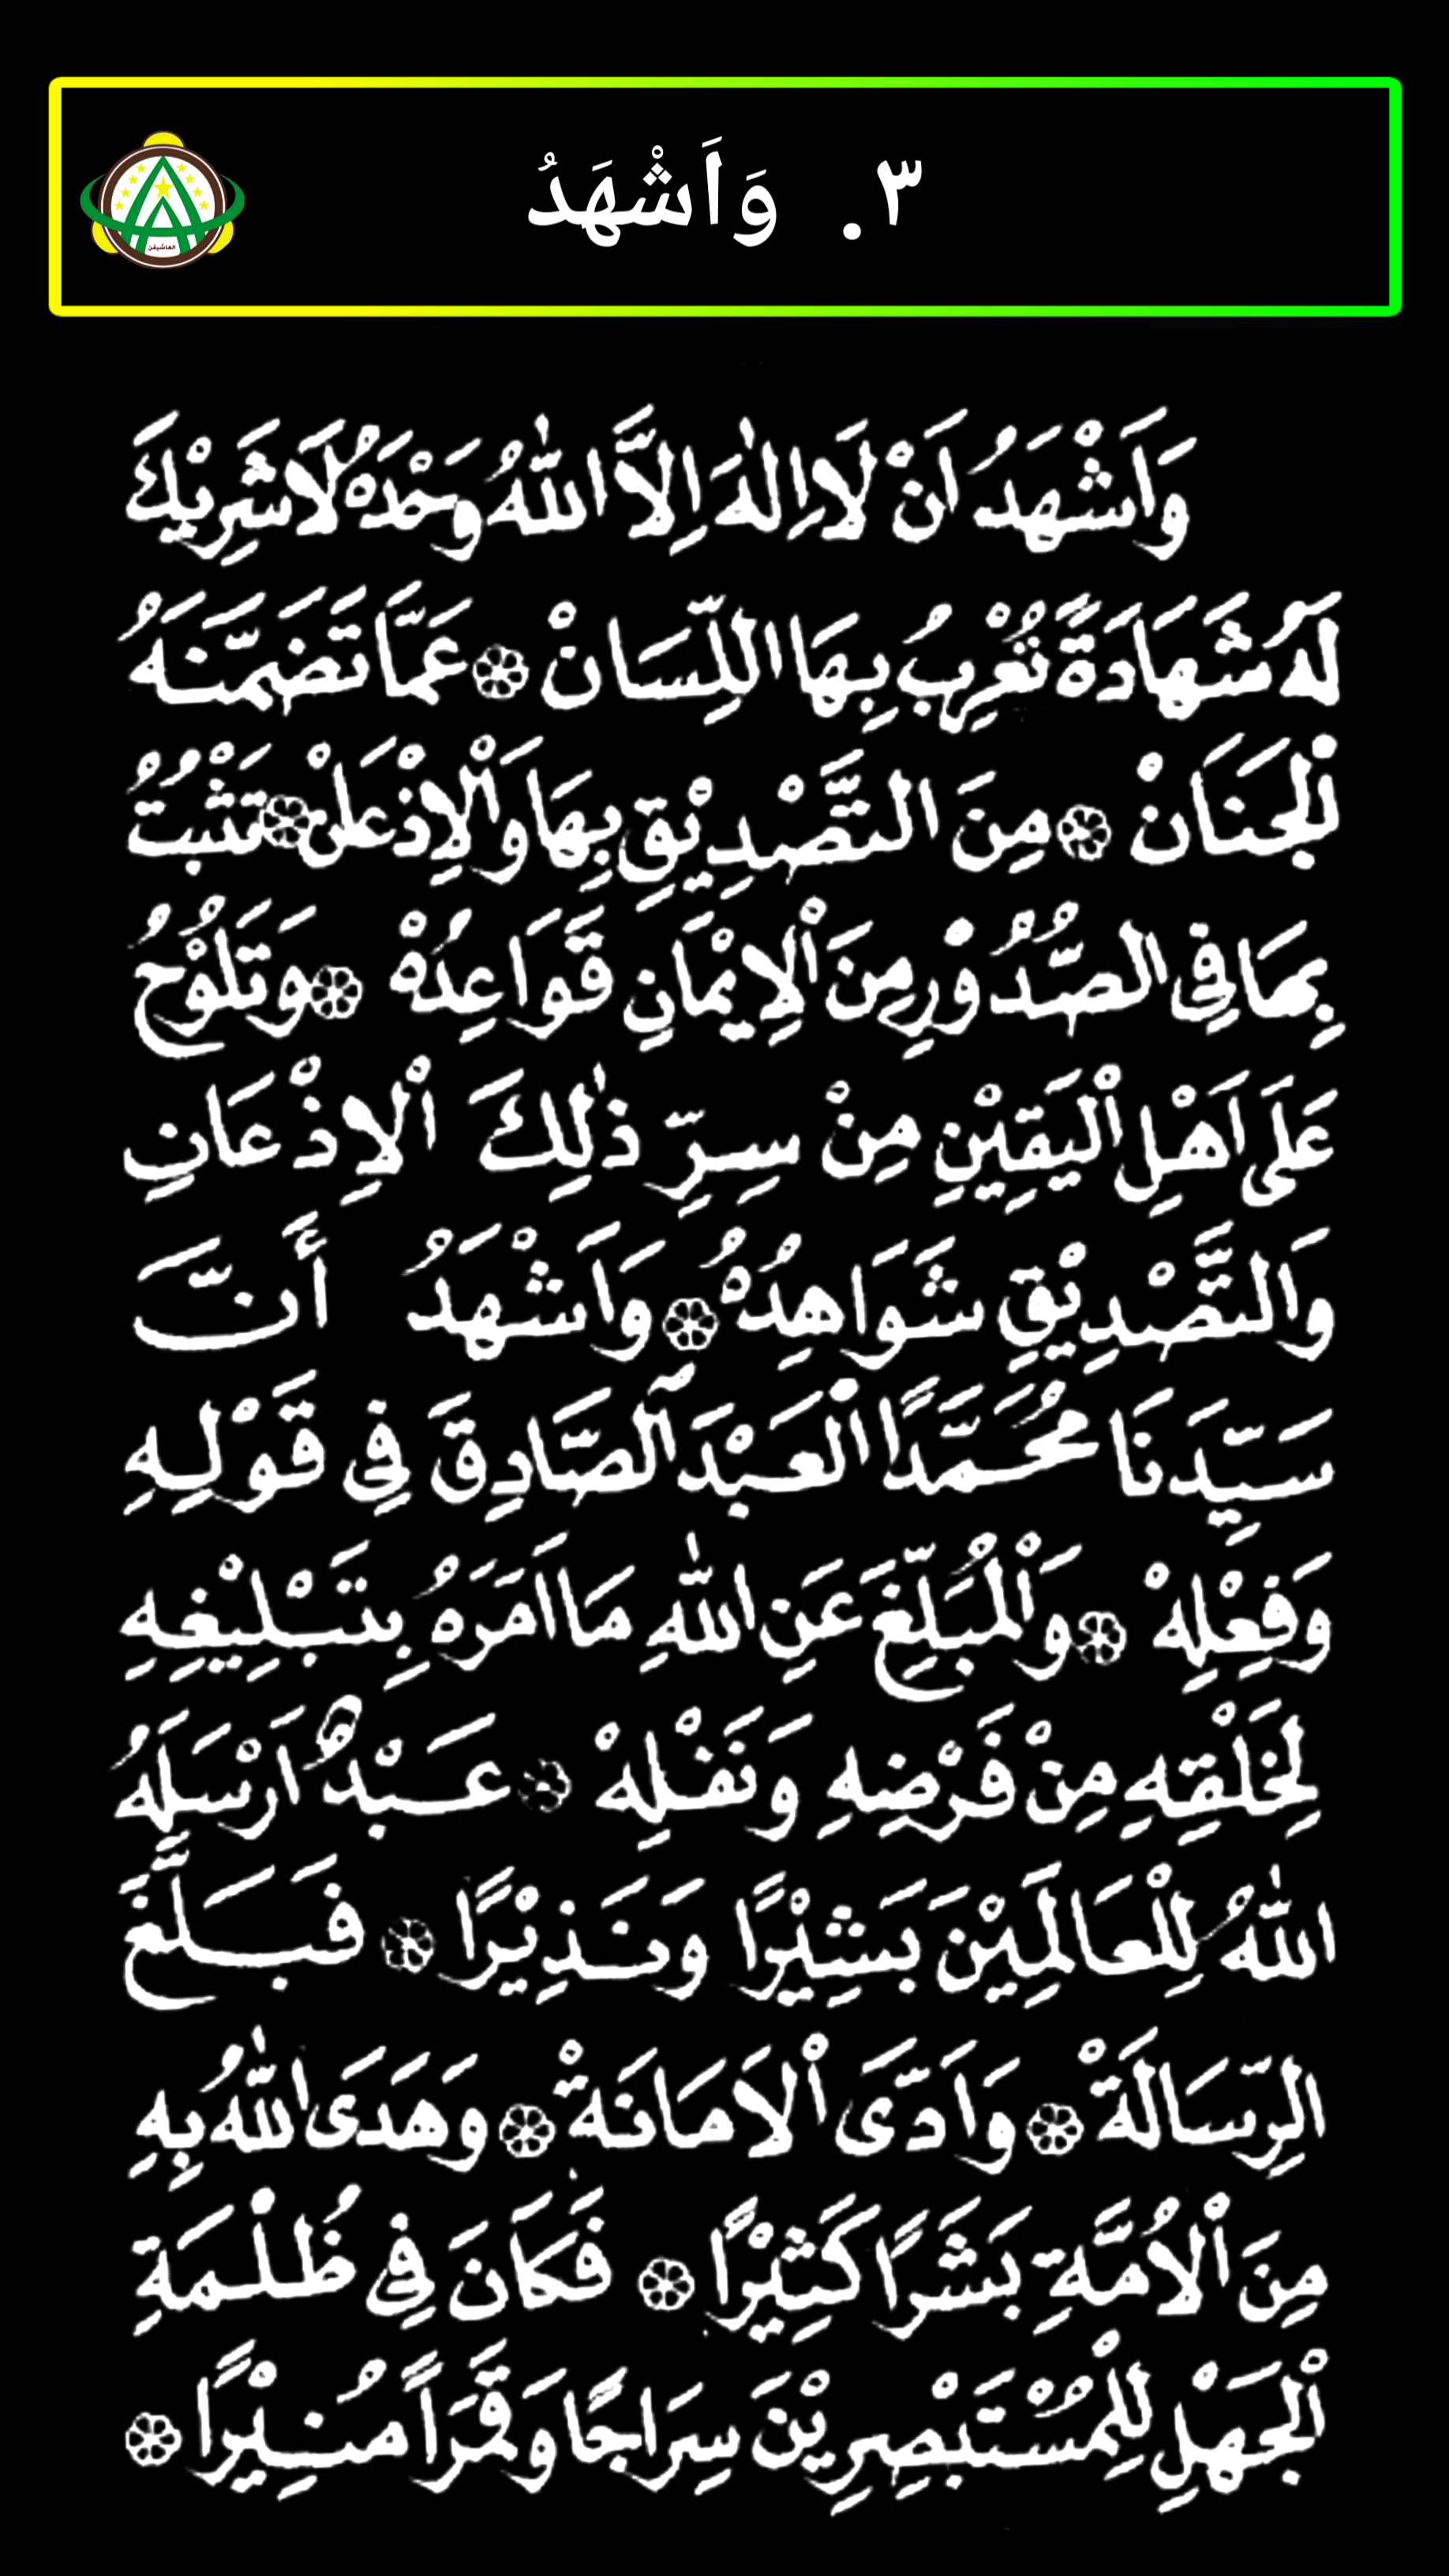 ٣. وَاَشْهَدُ
العاشيقن
وَاَشْهَدُ اَنْ لَااِلٰهَ اِلاَّ اللّٰهُ وَحْدَهُ لَاشَرِيْكَ
لَهُ شَهَادَةً تُعْرِبُ بِهَا اللِّسَانْ ۞ عَمَّا تَضَمَّنَهُ
لْجَنَانْ ۞ مِنَ التَّصْدِيْقِ بِهَا وَاْلاِذْعَانْ ۞ تَثْبُتُ
بِمَا فِى الصُّدُوْرِ مِنَ اْلاِيْمَانِ قَوَاعِدُهْ ۞ وَتَلُوْحُ
عَلَى اَهْلِ اْليَقِيْنِ مِنْ سِرِّ ذٰلِكَ اْلاِذْعَانِ
وَالتَّصْدِيْقِ شَوَاهِدُهْ ۞ وَاَشْهَدُ أَنَّ
سَيِّدَنَا مُحَمَّدًا اْلعَبْدَ الصَّادِقَ فِى قَوْلِهِ
وَفِعْلِهْ ۞ وَاْلمُبَلِّغَ عَنِ اللّٰهِ مَا اَمَرَهُ بِتَبْلِيْغِهِ
لِخَلْقِهِ مِنْ فَرْضِهِ وَنَفْلِهْ ۞ عَبْدٌ اَرْسَلَهُ
اللّٰهُ لِلْعَالَمِيْنَ بَشِيْرًا وَنَذِيْرًا ۞ فَبَلَّغَ
الرِّسَالَةْ ۞ وَاَدَّى اْلاَمَانَةْ ۞ وَهَدَى اللّٰهُ بِهِ
مِنَ اْلاُمَّةِ بَشَرًا كَثِيْرًا ۞ فَكَانَ فِى ظُلْمَةِ
اْلجَهْلِ لِلْمُسْتَبْصِرِيْنَ سِرَاجًا وَقَمَرًا مُنِيْرًا ۞